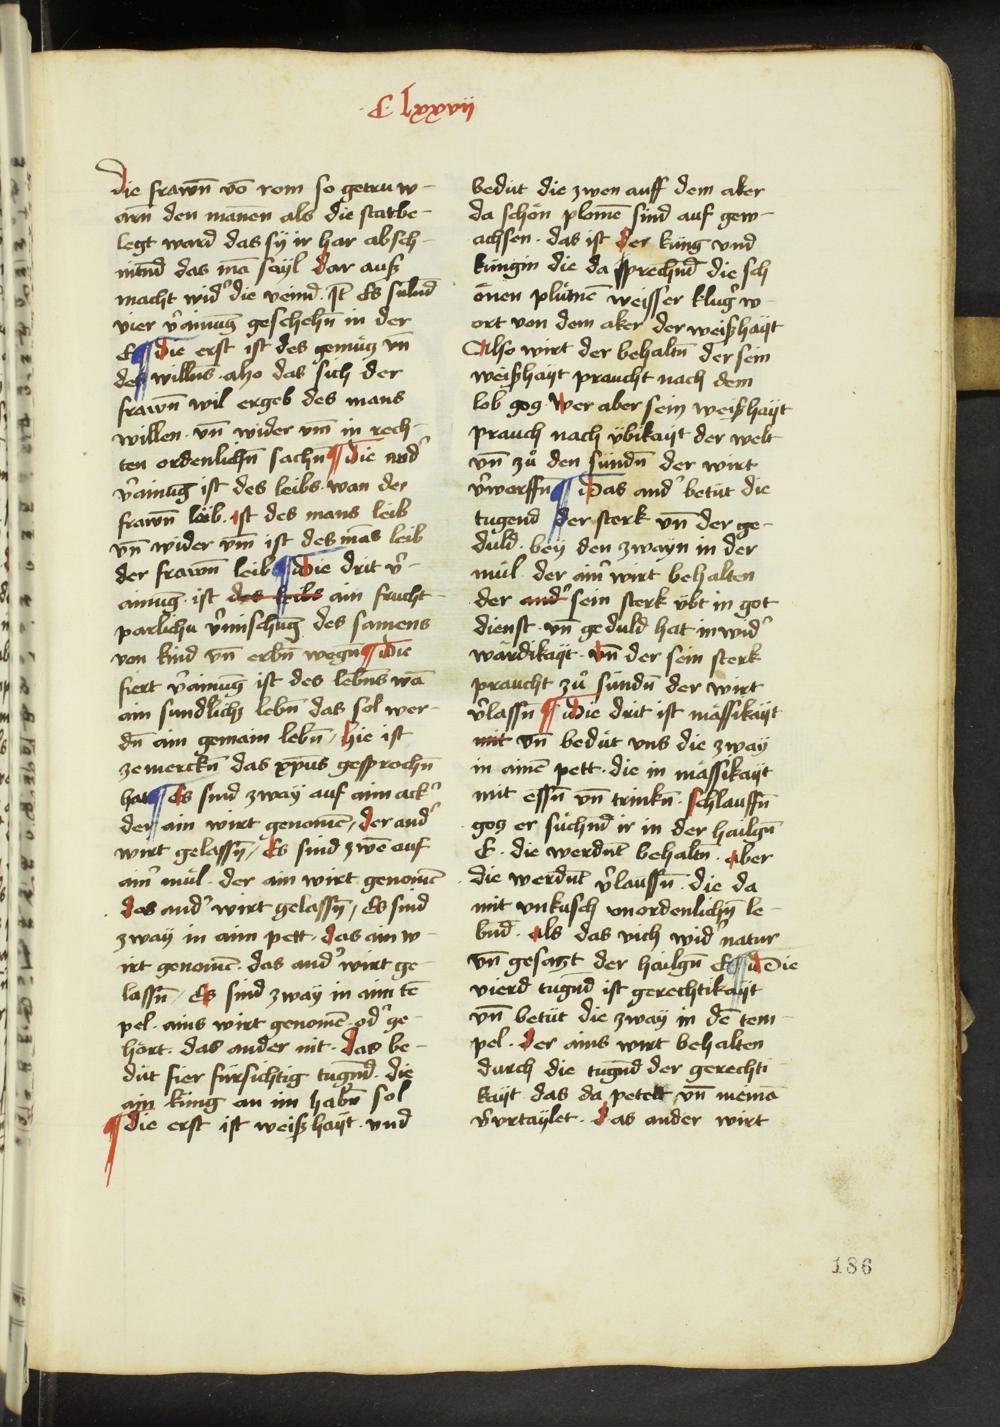 C lxxvij
die frawn̄ võ rom so getruw-
arn̄ den mānen als die statbe-
legt ward das sÿ ir har absch-
nittnd das mā sayl dar auß
macht widˀ die veind. Jt̄ Es sulnd
vier vˀainūg geschehn̄ in der
E ¶ die erst ist des gemütz vn̄
des willens also das sich der
frawn̄ wil ergeb des mans
willen. vn̄ wider vm̄ in rech-
ten ordenlichn̄ sachn̄ ¶ Die andˀ
vˀainūg ist des leibs. wan der
frawn̄ leib. ist des mans leib
vn̄ wider vm̄ ist des māns leib
der frawn̄ leib ¶ Die drit vˀ-
ainūg. ist des leibs ain frucht
parlichu vˀmischūg des samens
von kind vn̄ erbn̄ wegn̄ ¶ Die
fiert vˀainūg ist des lebn̄s wā
ain sundlichs lebn̄ das sol wer-
dn̄ ain gemain lebn̄ / hie ist
ze merckn̄ das xp̄us gesprochn̄
hat ¶ Es sind zway auf aim ackˀ
der ain wirt genomē / der andˀ
wirt gelassn̄ / Es sind zwē auf
ainˀ mül. der ain wirt genomē
des andˀ wirt gelassn̄ / Es sind
zway in aim pett. das ain w-
irt genomē. das andˀ wirt ge-
lassn̄ / Es sind zway in aim tē
pel. ains wirt genomē. odˀ ge-
hört. das ander nit. das be-
düt fier fürsichtig tugn̄d. die
ain küng an im habn̄ sol
¶ die erst ist weißhayt. vnd
bedüt die zwen auff dem aker
da schön plomē sind auf gew-
achsen. das ist der küng vnd
küngin die da sprechnd die sch
önen plümē weisser klugˀ w-
ort von dem aker der weißhayt
Also wirt der behaltn̄ der sein
weißhayt praucht nach dem
lob gotz. Wer aber sein weißhayt
prauch nach übikayt der welt
vn̄ zů den sündn̄ der wirt
vˀworffn̄ ¶ Das andˀ betüt die
tugend der sterk vn̄ der ge-
duld. bey den zwayn in der
mül. der ainˀ wirt behalten
der andˀ sein sterk übt in got
dienst. vn̄ geduld hat in widˀ
wärdikayt. vn̄ der sein sterk
praucht zů sündn̄ der wirt
vˀlassn̄ ¶ Die drit ist mässikayt
mit vn̄ bedüt vns die zway
in ainē pett. die in mässikayt
mit essn̄ vn̄ trinkn̄. schlauffn̄
gotz er süchnd ir in der hailgn̄
E. die werdn̄t behaltn̄. aber
die werdn̄t vˀlaussn̄. die da
mit vnkusch vnordenlichn̄ le-
bnd̄. als das vich widˀ natur
vn̄ gesatzt der hailgn̄ E ¶ Die
vierd tugn̄d ist gerechtikayt
vn̄ betüt die zway in dē tem-
pel. der ains wirt behalten
durch die tugn̄d der gerechti
kayt das da petett vn̄ niemā
vˀurtaylet. das ander wirt
186